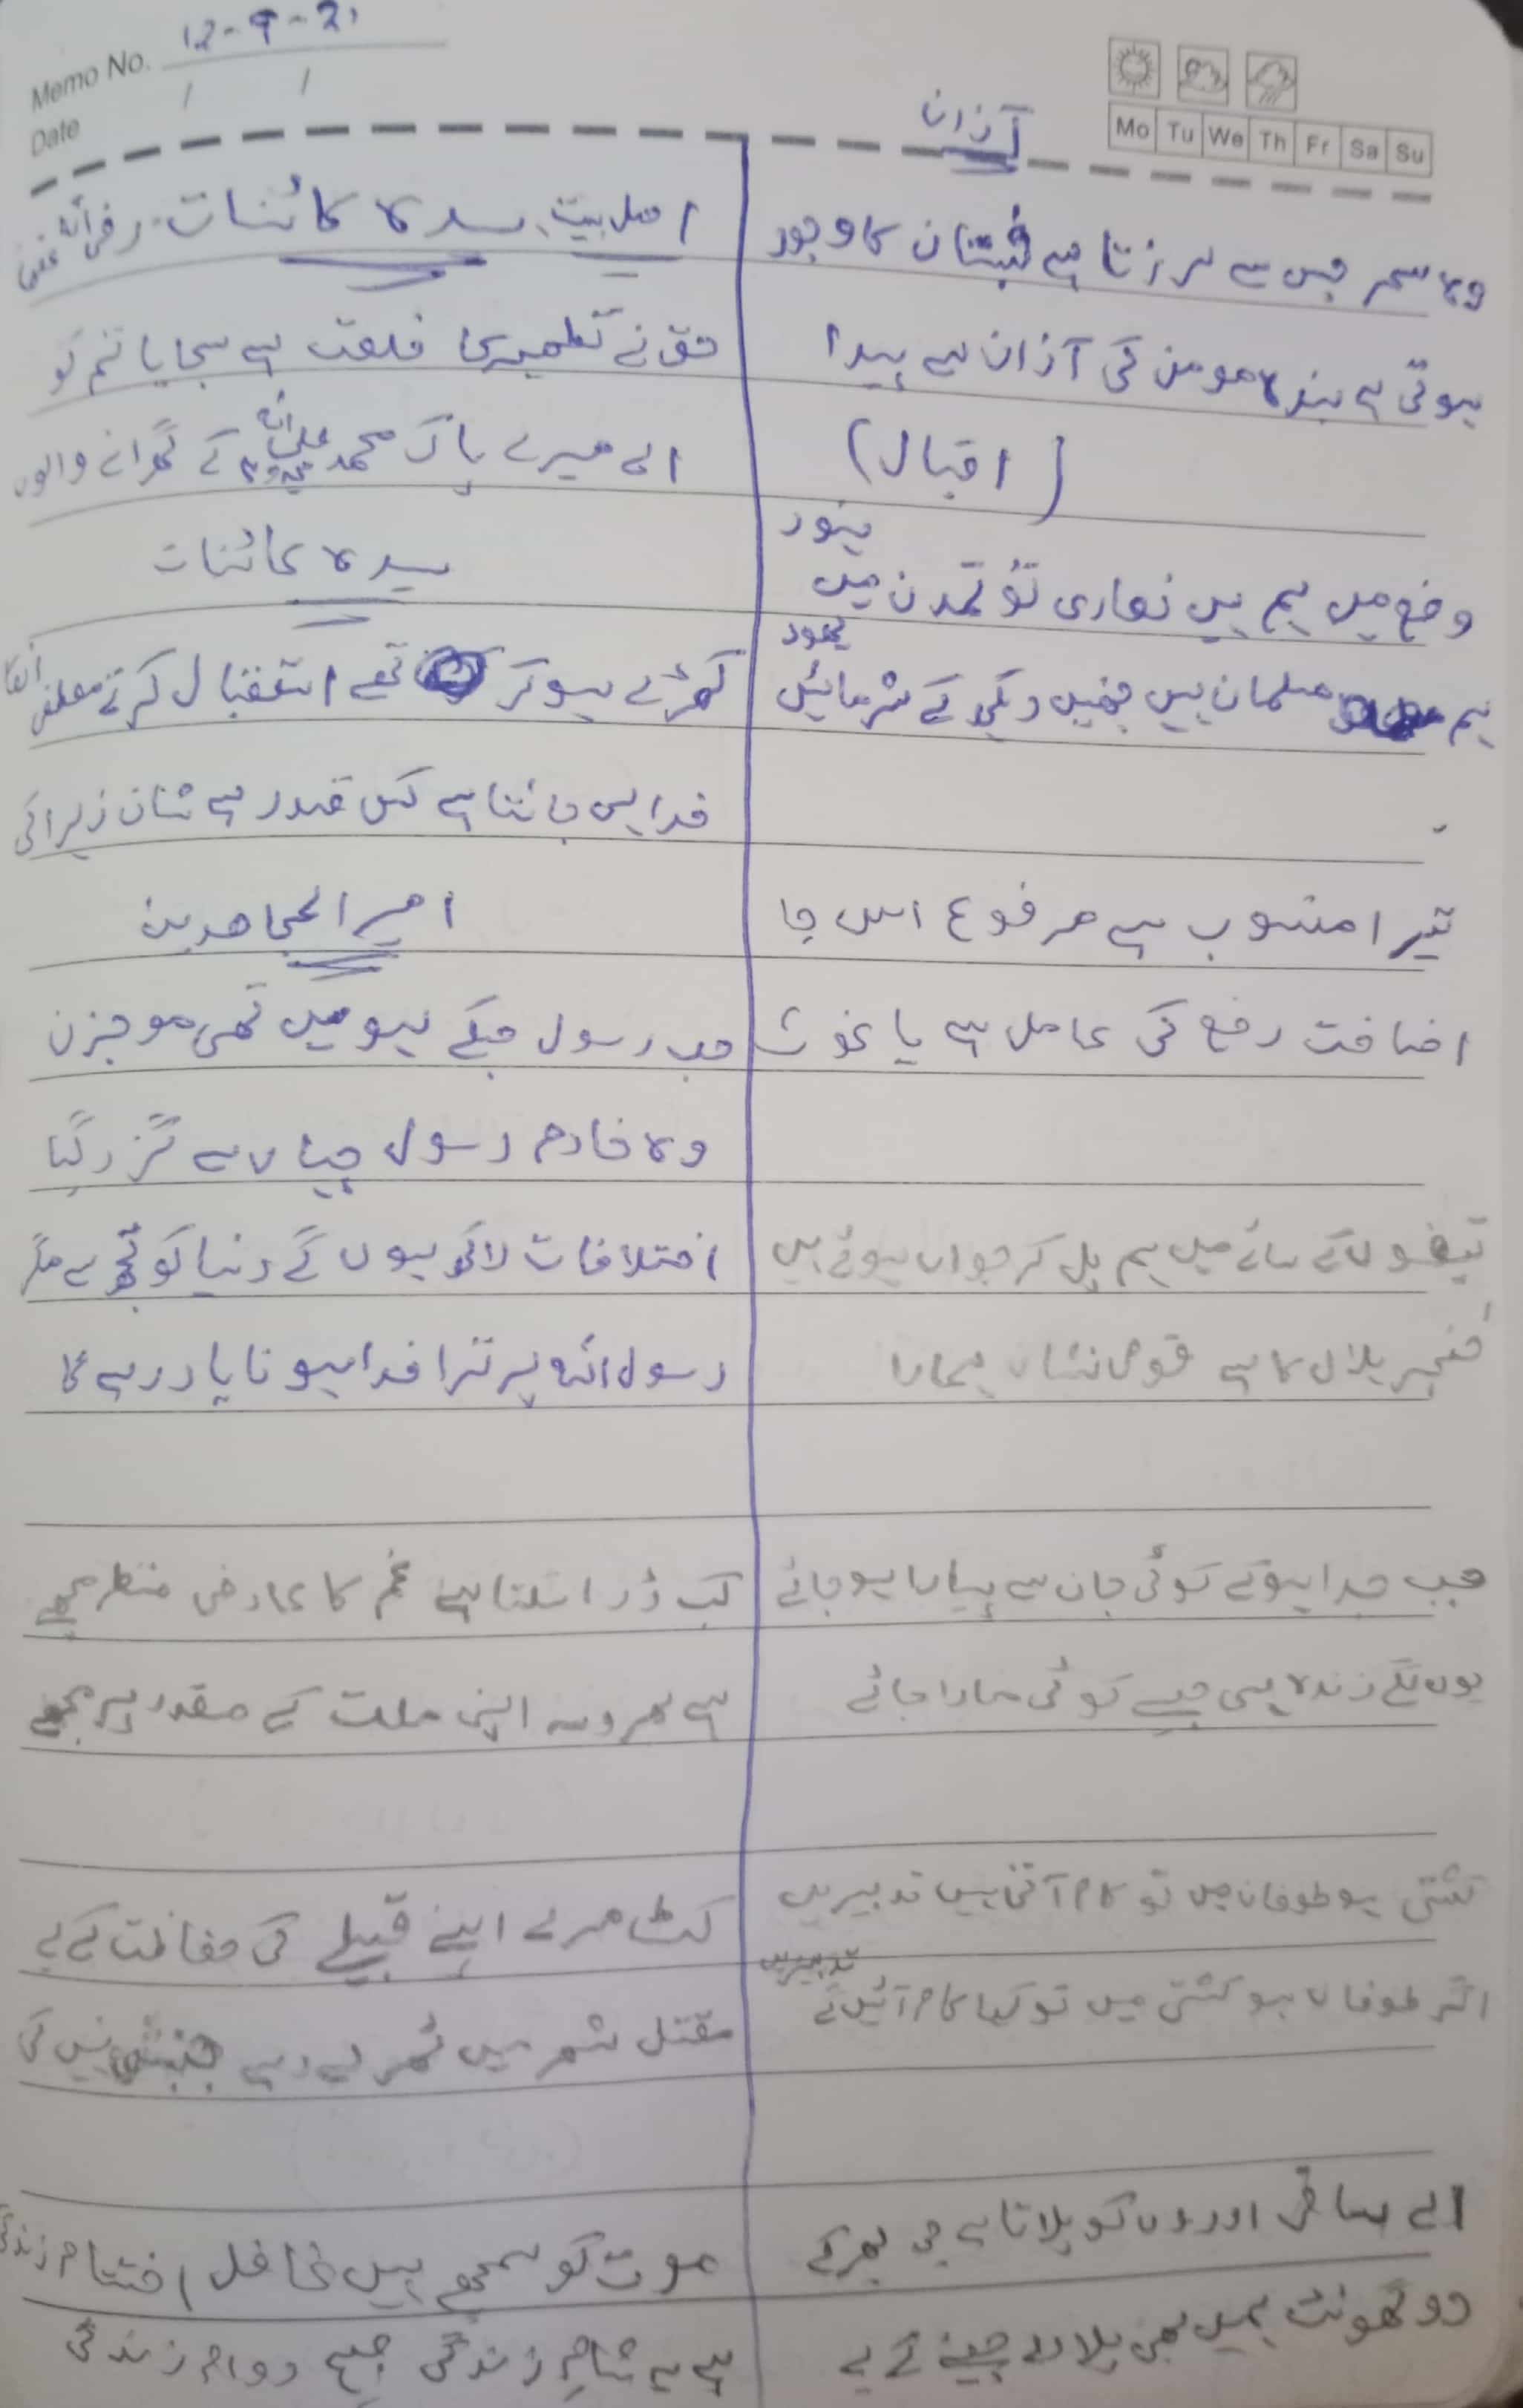 Memo No. 12-9-21
Date / /
Mo Tu We Th Fr Sa Su
آذان
وہ سحر جس سے لرزتا ہے شبستان کا وجود
ہوتی ہے بندہ مومن کی آذان سے پیدا
(اقبال)
وضع میں ہم ہیں نصاری تو تمدن میں ہنود
ہم مسلمان ہیں جنہیں دیکھ کے شرمائیں یہود
تیرا منسوب ہے مرفوع اس جا
اضافت رفع کی عامل ہے یا غوث
تیغوں کے سائے میں ہم پل کر جواں ہوئے ہیں
خنجر ہلال کا ہے قومی نشاں ہمارا
جب جدا ہوکے کوئی جان سے پیارا ہو جائے
یوں لگے زندہ ہی جیسے کوئی مارا جائے
کشتی ہو طوفان میں تو کام آتی ہیں تدبیریں
اگر طوفاں ہو کشتی میں تو کیا کام آئیں گے تدبیریں
اے ساقی اوروں کو پلاتا ہے جی بھر کے
دو گھونٹ ہمیں بھی پلا دے جینے کے لیے
اھلبیت، سیدہ کائنات رضی اللہ عنھا
حق نے تطہیر کی خلعت سے سجایا تم کو
اے میرے پاک محمد صلی اللہ علیہ وسلم کے گھرانے والوں
سیدہ کائنات
کھڑے ہوکر تھے استقبال کرتے مصطفی انکا
خدا ہی جانتا ہے کس قدر ہے شان زہرا کی
امیر المجاھدین
حب رسول جسکے لہو میں تھی موجزن
وہ خادم رسول جہاں سے گزر گیا
اختلافات لاکھ ہوں گے دنیا کو تجھ سے مگر
رسول اللہ پر ترا فدا ہونا یاد رہے گا
کب ڈرا سکتا ہے غم کا عارضی منظر مجھے
ہے بھروسہ اپنی ملت کے مقدر پر مجھے
کٹ مرے اپنے قبیلے کی حفاظت کے لیے
مقتل شہر میں ٹھہرے رہے جنبش نہیں کی
موت کو سمجھے ہیں غافل اختتام زندگی
ہے یہ شام زندگی صبح دوام زندگی